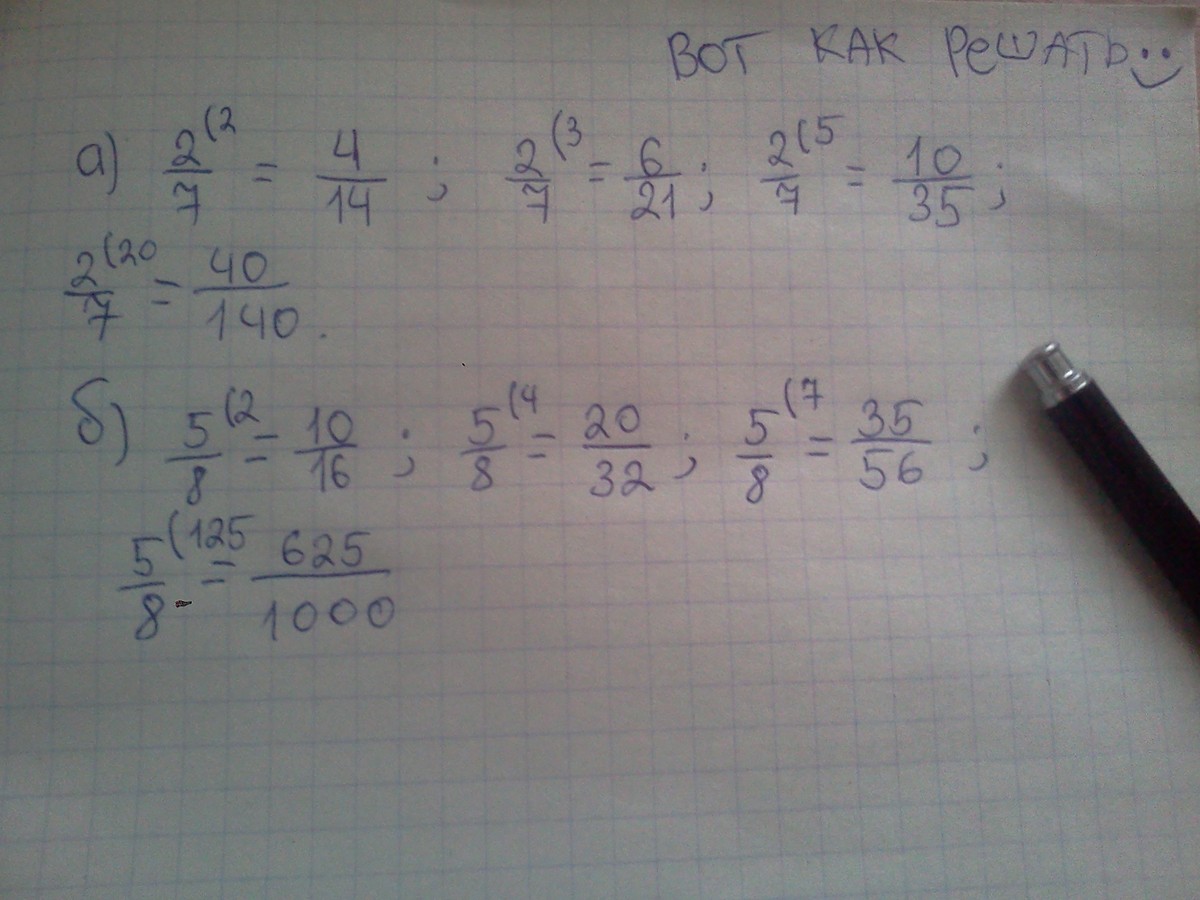 ВОТ КАК РЕШАТЬ
а) 2/7 (2 = 4/14 ; 2/7 (3 = 6/21 ; 2/7 (5 = 10/35 ;
2/7 (20 = 40/140 .
б) 5/8 (2 = 10/16 ; 5/8 (4 = 20/32 ; 5/8 (7 = 35/56 ;
5/8 (125 = 625/1000